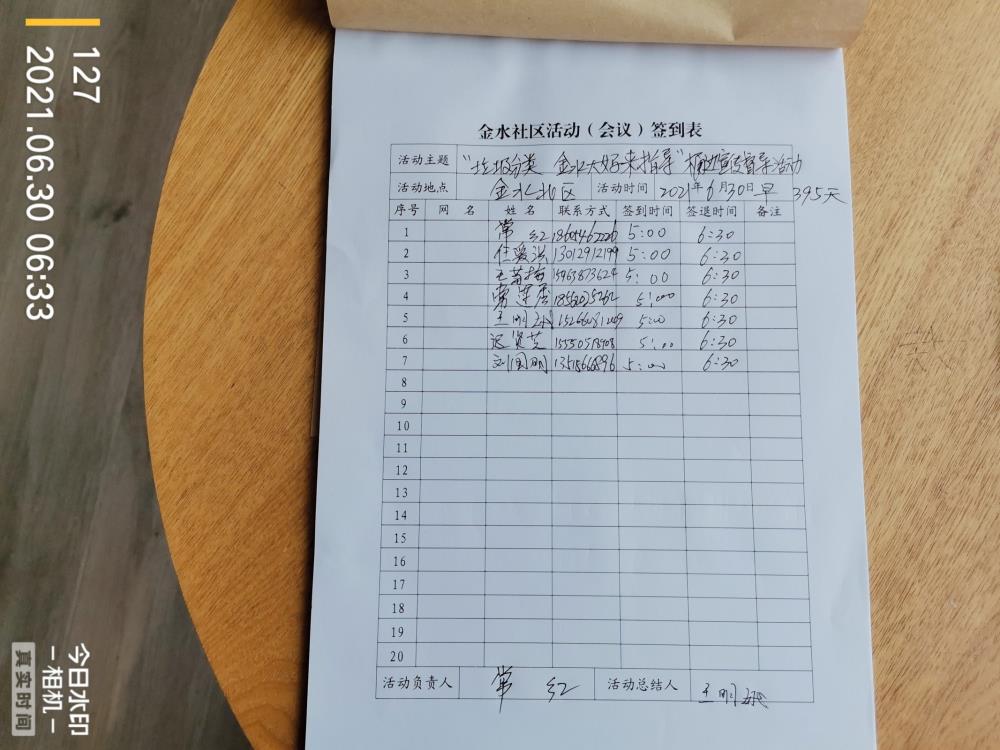 127
2021.06.30 06:33
金水社区活动（会议）签到表
活动主题 "垃圾分类 金水大姐来指导"桶边宣传督导活动
活动地点 金水北区 活动时间 2021年6月30日早 395天
序号 网名 姓名 联系方式 签到时间 签退时间 备注
1 常红 5:00 6:30
2 任爱法 13012912199 5:00 6:30
3 王 15963873624 5:00 6:30
4 常莲香 5:00 6:30
5 王明 5:00 6:30
6 迟贤芝 5:00 6:30
7 刘国明 5:00 6:30
8
9
10
11
12
13
14
15
16
17
18
19
20
活动负责人 常红 活动总结人 王明
今日水印
－相机－
真实时间